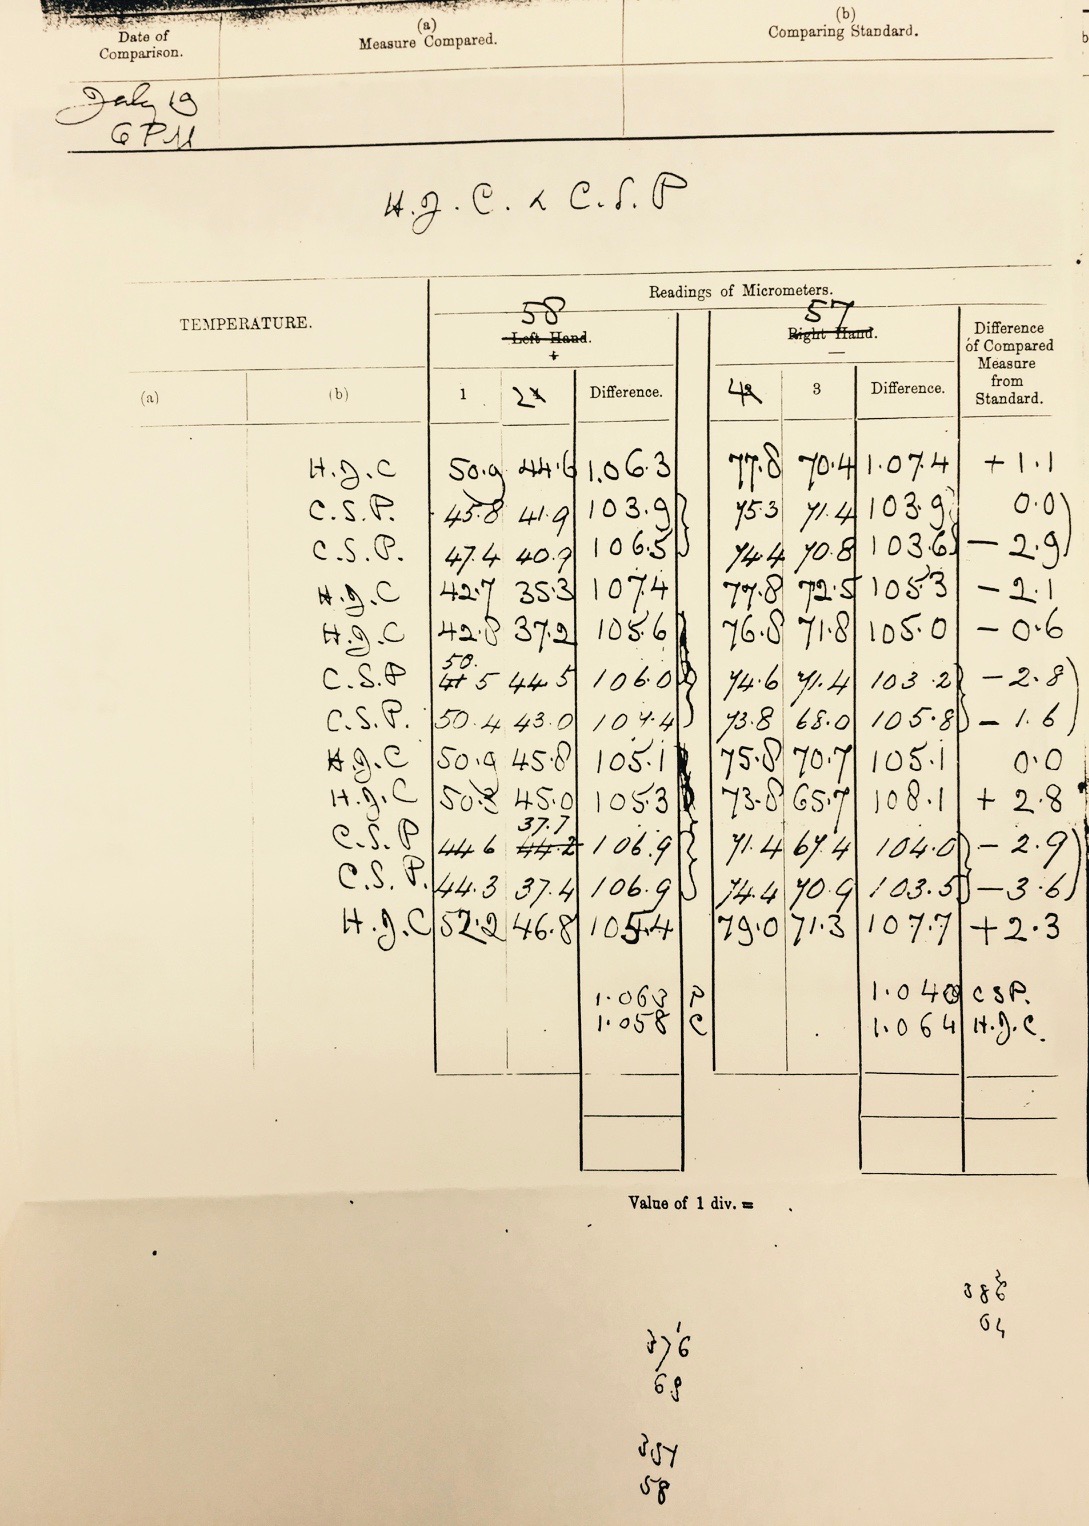 Date of Comparison. (a) Measure Compared. (b) Comparing Standard.
July 19
6 PM
H.J.C. & C.S.P
TEMPERATURE. Readings of Micrometers.
58 57
Left Hand. Right Hand. Difference of Compared Measure from Standard.
+ —
(a) (b) 1 2 Difference. 4 3 Difference.
H.J.C 50.9 44.6 1.06.3 77.8 70.4 1.07.4 + 1.1
C.S.P. 45.8 41.9 103.9 75.3 71.4 103.9 0.0
C.S.P. 47.4 40.9 106.5 74.4 70.8 103.6 — 2.9
H.J.C 42.7 35.3 107.4 77.8 72.5 105.3 — 2.1
H.J.C 42.8 37.2 105.6 76.8 71.8 105.0 — 0.6
50.
C.S.P 5 44.5 106.0 74.6 71.4 103.2 — 2.8
C.S.P. 50.4 43.0 107.4 73.8 68.0 105.8 — 1.6
H.J.C 50.9 45.8 105.1 75.8 70.7 105.1 0.0
H.J.C 50.3 45.0 105.3 73.8 65.7 108.1 + 2.8
37.7
C.S.P 44.6 44.2 106.9 71.4 67.4 104.0 — 2.9
C.S.P. 44.3 37.4 106.9 74.4 70.9 103.5 — 3.6
H.J.C 52.2 46.8 105.4 79.0 71.3 107.7 + 2.3
1.063 P 1.040 CSP.
1.058 C 1.064 H.J.C.
Value of 1 div. =
386
64
376
63
357
58